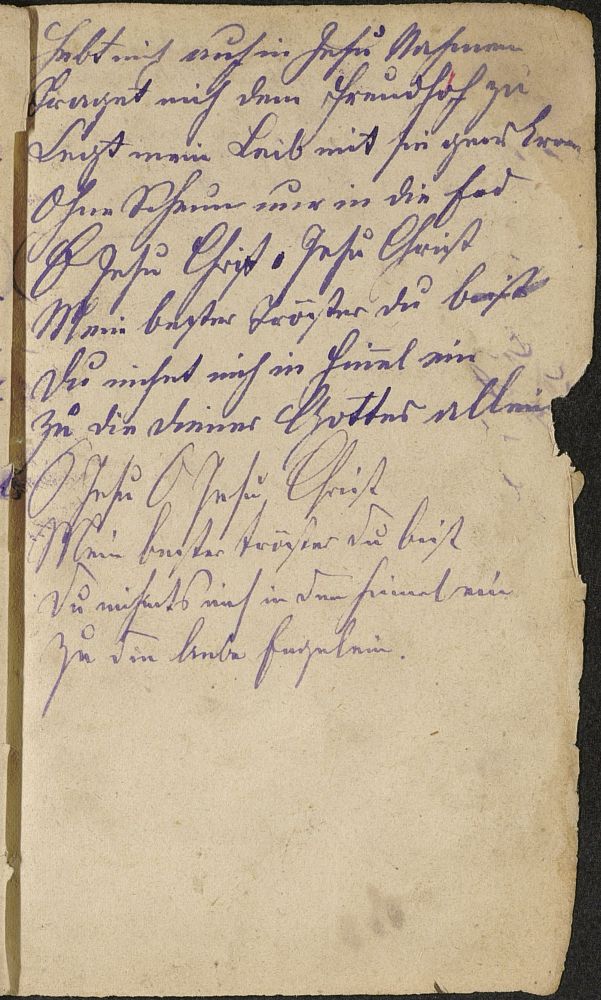 Hebt mich auf in Jesu Nahmen
Traget mich dem Freudhof zu
Legt mein Leib mit sie
Ohne Scheun nur in die Erd
O Jesu Christ O Jesu Christ
Mein bester Tröster du beist
Du nihmt mich in Himel ein
Zu die diener Gottes allein
O Jesu O Jesu Christ
Mein bester tröster du beist
Du nihmts mich in den himel ein
Zu den liebe Engelein.